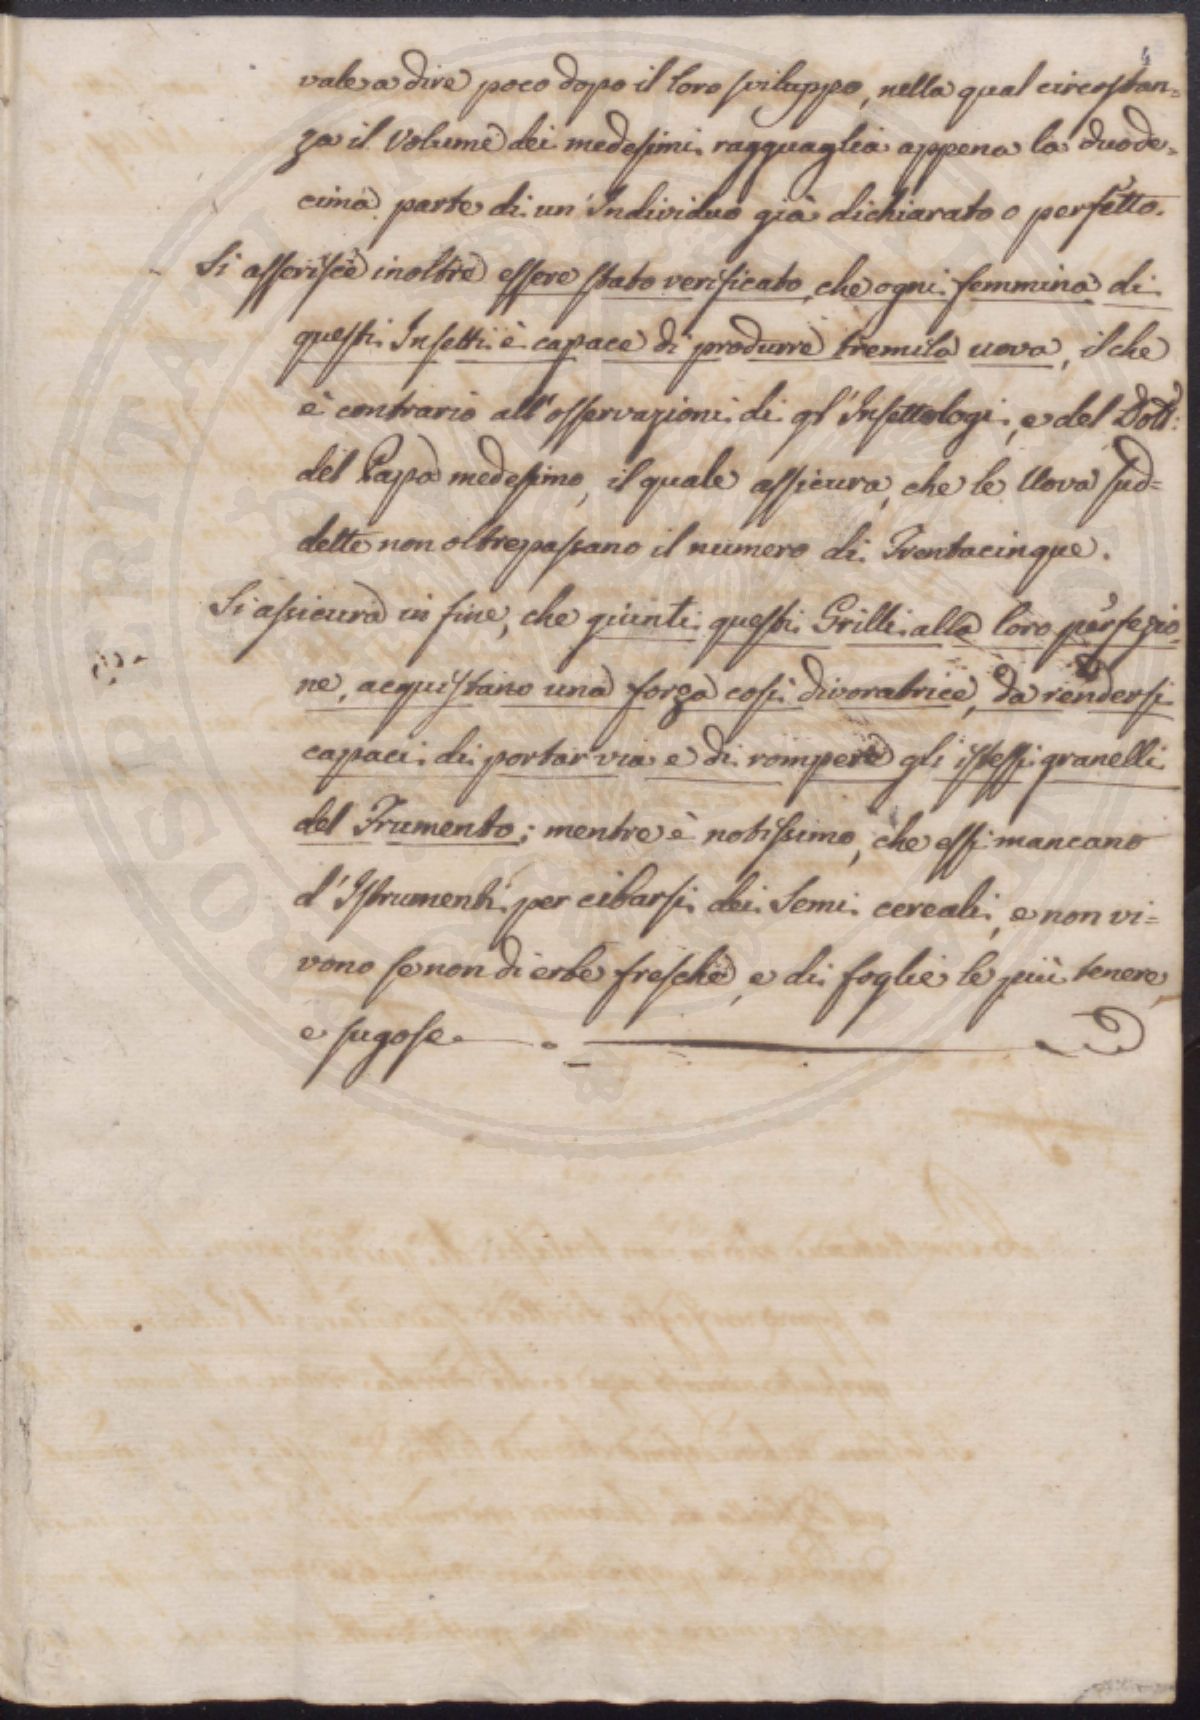 vale a dire poco dopo il loro sviluppo, nella qual circostan=
za il Volume dei medesimi ragguaglia appena la duode=
cima parte di un Individuo già dichiarato o perfetto.
Si asserisce inoltre essere stato verificato, che ogni femmina di
questi Insetti è capace di produrre tremila uova, il che
è contrario all'osservazioni di gl'Insettologi, e del Dott:
del Papa medesimo, il quale assicura, che le Uova sud=
dette non oltrepassano il numero di Trentacinque.
Si assicura in fine, che giunti questi Grilli alla loro perfezio=
ne, acquistano una forza così divoratrice, da rendersi
capaci di portar via e di rompere gli istessi granelli
del Frumento; mentre è notissimo, che essi mancano
d'Istrumenti per cibarsi dei Semi cereali, e non vi=
vono se non di erbe fresche, e di foglie le più tenere,
e sugose.
PROSPERITATI